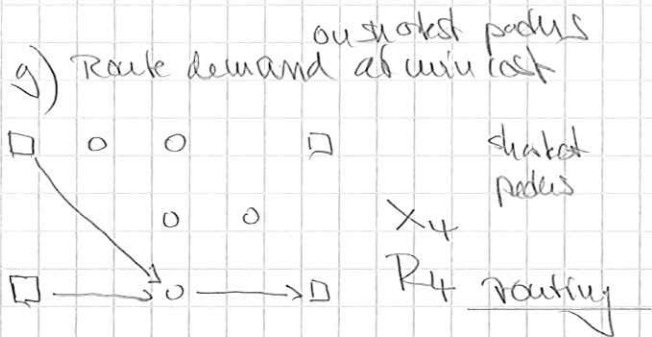 on shortest paths
g) Route demand at min cost
shortest
paths
X4
R4 routing